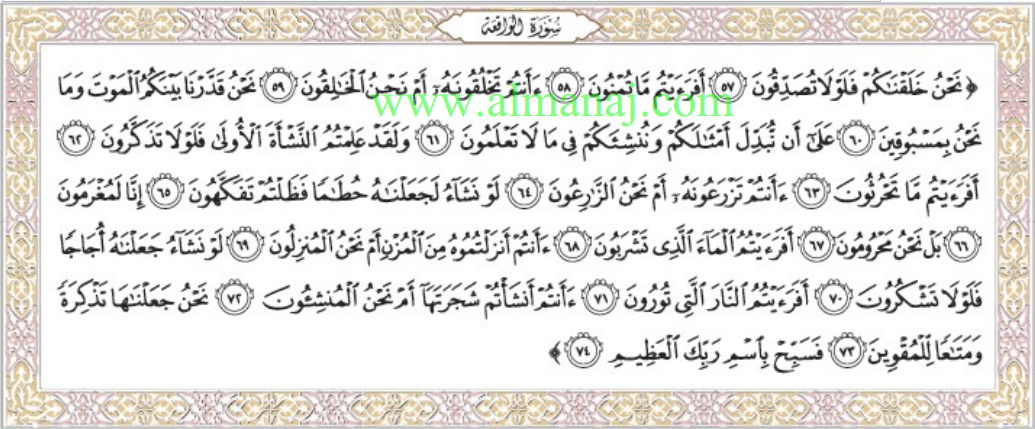 سُورَةُ الْوَاقِعَة
﴿ نَحْنُ خَلَقْنَٰكُمْ فَلَوْلَا تُصَدِّقُونَ ٥٧ أَفَرَءَيْتُم مَّا تُمْنُونَ ٥٨ ءَأَنتُمْ تَخْلُقُونَهُۥٓ أَمْ نَحْنُ ٱلْخَٰلِقُونَ ٥٩ نَحْنُ قَدَّرْنَا بَيْنَكُمُ ٱلْمَوْتَ وَمَا
www.almanaj.com
نَحْنُ بِمَسْبُوقِينَ ٦٠ عَلَىٰٓ أَن نُّبَدِّلَ أَمْثَٰلَكُمْ وَنُنشِئَكُمْ فِي مَا لَا تَعْلَمُونَ ٦١ وَلَقَدْ عَلِمْتُمُ ٱلنَّشْأَةَ ٱلْأُولَىٰ فَلَوْلَا تَذَكَّرُونَ ٦٢
أَفَرَءَيْتُم مَّا تَحْرُثُونَ ٦٣ ءَأَنتُمْ تَزْرَعُونَهُۥٓ أَمْ نَحْنُ ٱلزَّٰرِعُونَ ٦٤ لَوْ نَشَآءُ لَجَعَلْنَٰهُ حُطَٰمًا فَظَلْتُمْ تَفَكَّهُونَ ٦٥ إِنَّا لَمُغْرَمُونَ
٦٦ بَلْ نَحْنُ مَحْرُومُونَ ٦٧ أَفَرَءَيْتُمُ ٱلْمَآءَ ٱلَّذِي تَشْرَبُونَ ٦٨ ءَأَنتُمْ أَنزَلْتُمُوهُ مِنَ ٱلْمُزْنِ أَمْ نَحْنُ ٱلْمُنزِلُونَ ٦٩ لَوْ نَشَآءُ جَعَلْنَٰهُ أُجَاجًا
فَلَوْلَا تَشْكُرُونَ ٧٠ أَفَرَءَيْتُمُ ٱلنَّارَ ٱلَّتِي تُورُونَ ٧١ ءَأَنتُمْ أَنشَأْتُمْ شَجَرَتَهَآ أَمْ نَحْنُ ٱلْمُنشِـُٔونَ ٧٢ نَحْنُ جَعَلْنَٰهَا تَذْكِرَةً
وَمَتَٰعًا لِّلْمُقْوِينَ ٧٣ فَسَبِّحْ بِٱسْمِ رَبِّكَ ٱلْعَظِيمِ ٧٤ ﴾